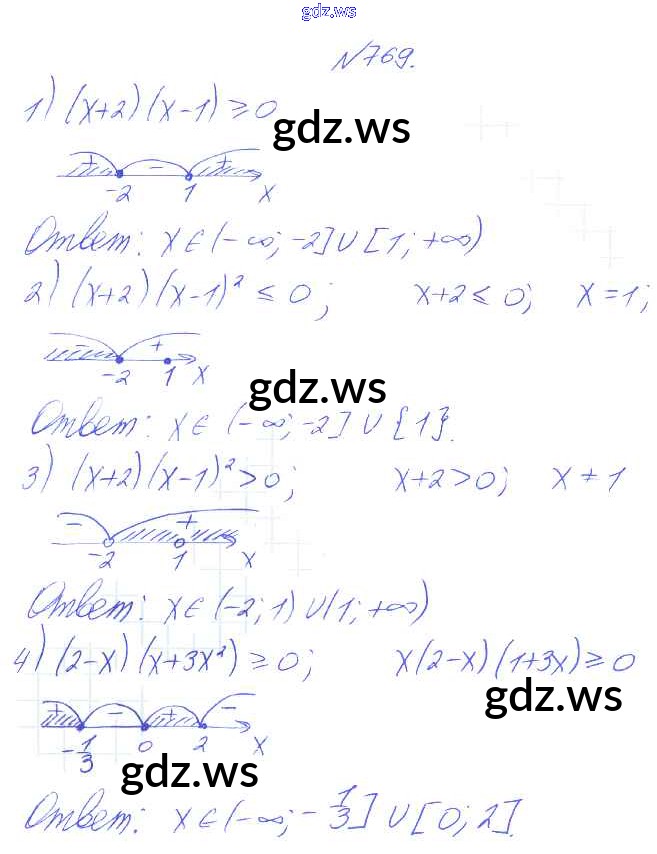 gdz.ws
№769.
1) (x+2)(x-1) ≥ 0
gdz.ws
+ - +
-2 1 x
Ответ: x∈(-∞; -2]∪[1; +∞)
2) (x+2)(x-1)² ≤ 0; x+2 ≤ 0; x=1;
- +
-2 1 x
gdz.ws
Ответ: x∈(-∞; -2]∪{1}.
3) (x+2)(x-1)²>0; x+2>0; x≠1
- +
-2 1 x
Ответ: x∈(-2; 1)∪(1; +∞)
4) (2-x)(x+3x²) ≥ 0; x(2-x)(1+3x) ≥ 0
gdz.ws
+ - + -
-1/3 0 2 x
gdz.ws
Ответ: x∈(-∞; -1/3]∪[0; 2].